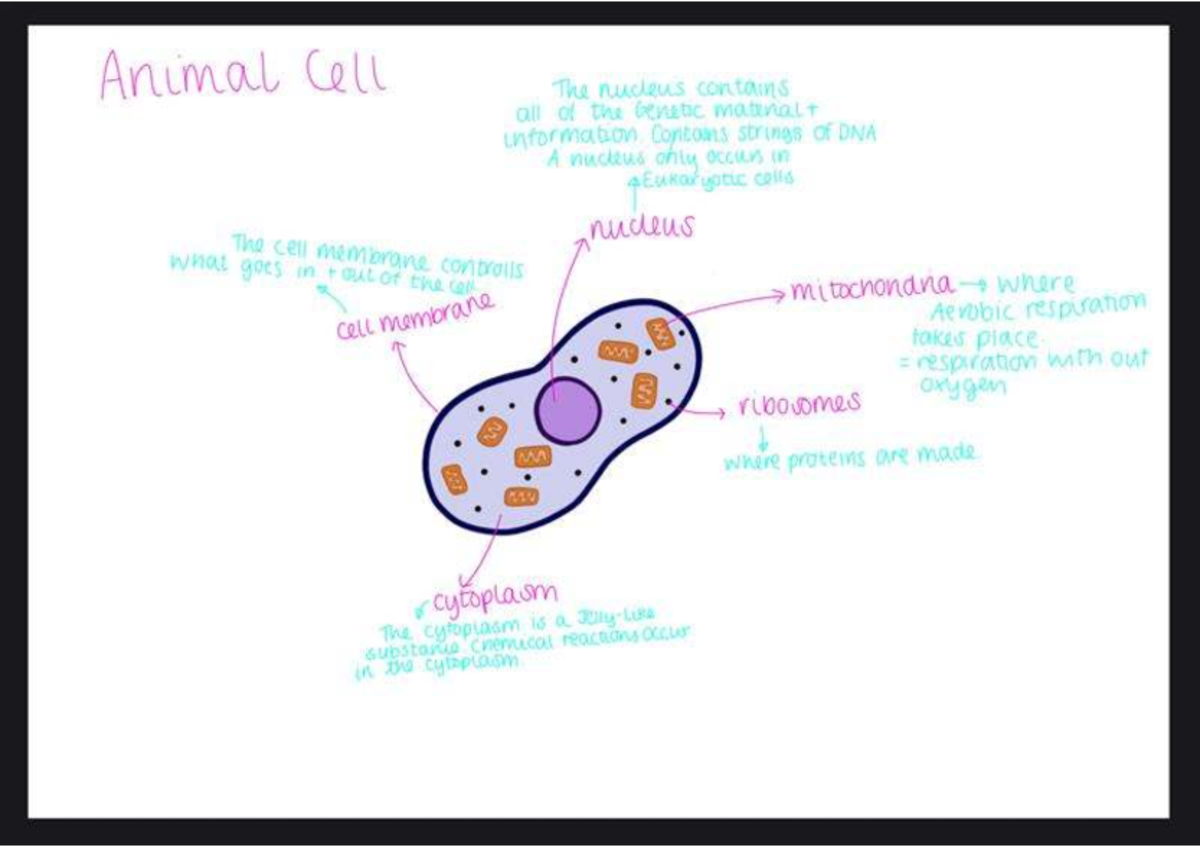 Animal Cell
The nucleus contains
all of the Genetic material +
information. Contains strings of DNA
A nucleus only occurs in
Eukaryotic cells
nucleus
The cell membrane controlls
what goes in + out of the cell
cell membrane
mitochondria → where
Aerobic respiration
takes place.
= respiration with out
oxygen
ribosomes
where proteins are made.
cytoplasm
The cytoplasm is a Jelly-like
substance. Chemical reactions occur
in the cytoplasm